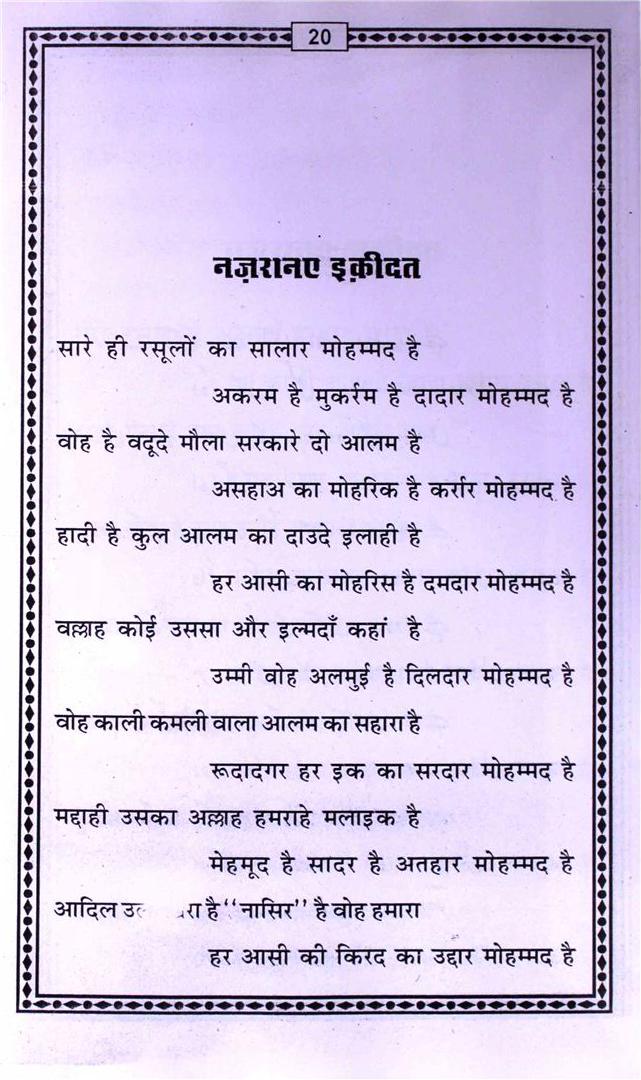 20
नज़रानए इक़ीदत
सारे ही रसूलों का सालार मोहम्मद है
अकरम है मुकर्रम है दादार मोहम्मद है
वोह है वदूदे मौला सरकारे दो आलम है
असहाअ का मोहरिक है कर्रार मोहम्मद है
हादी है कुल आलम का दाउदे इलाही है
हर आसी का मोहरिस है दमदार मोहम्मद है
वल्लाह कोई उससा और इल्मदाँ कहां है
उम्मी वोह अलमुई है दिलदार मोहम्मद है
वोह काली कमली वाला आलम का सहारा है
रूदादगर हर इक का सरदार मोहम्मद है
मद्दाही उसका अल्लाह हमराहे मलाइक है
मेहमूद है सादर है अतहार मोहम्मद है
आदिल है ‘‘नासिर’’ है वोह हमारा
हर आसी की किरद का उद्दार मोहम्मद है